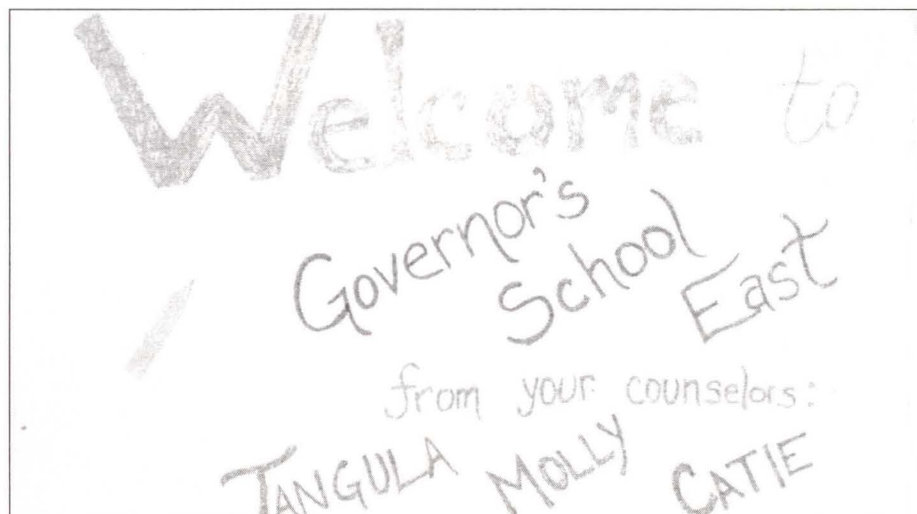 Welcome to
Governor's
School
East
from your counselors:
TANGULA MOLLY CATIE